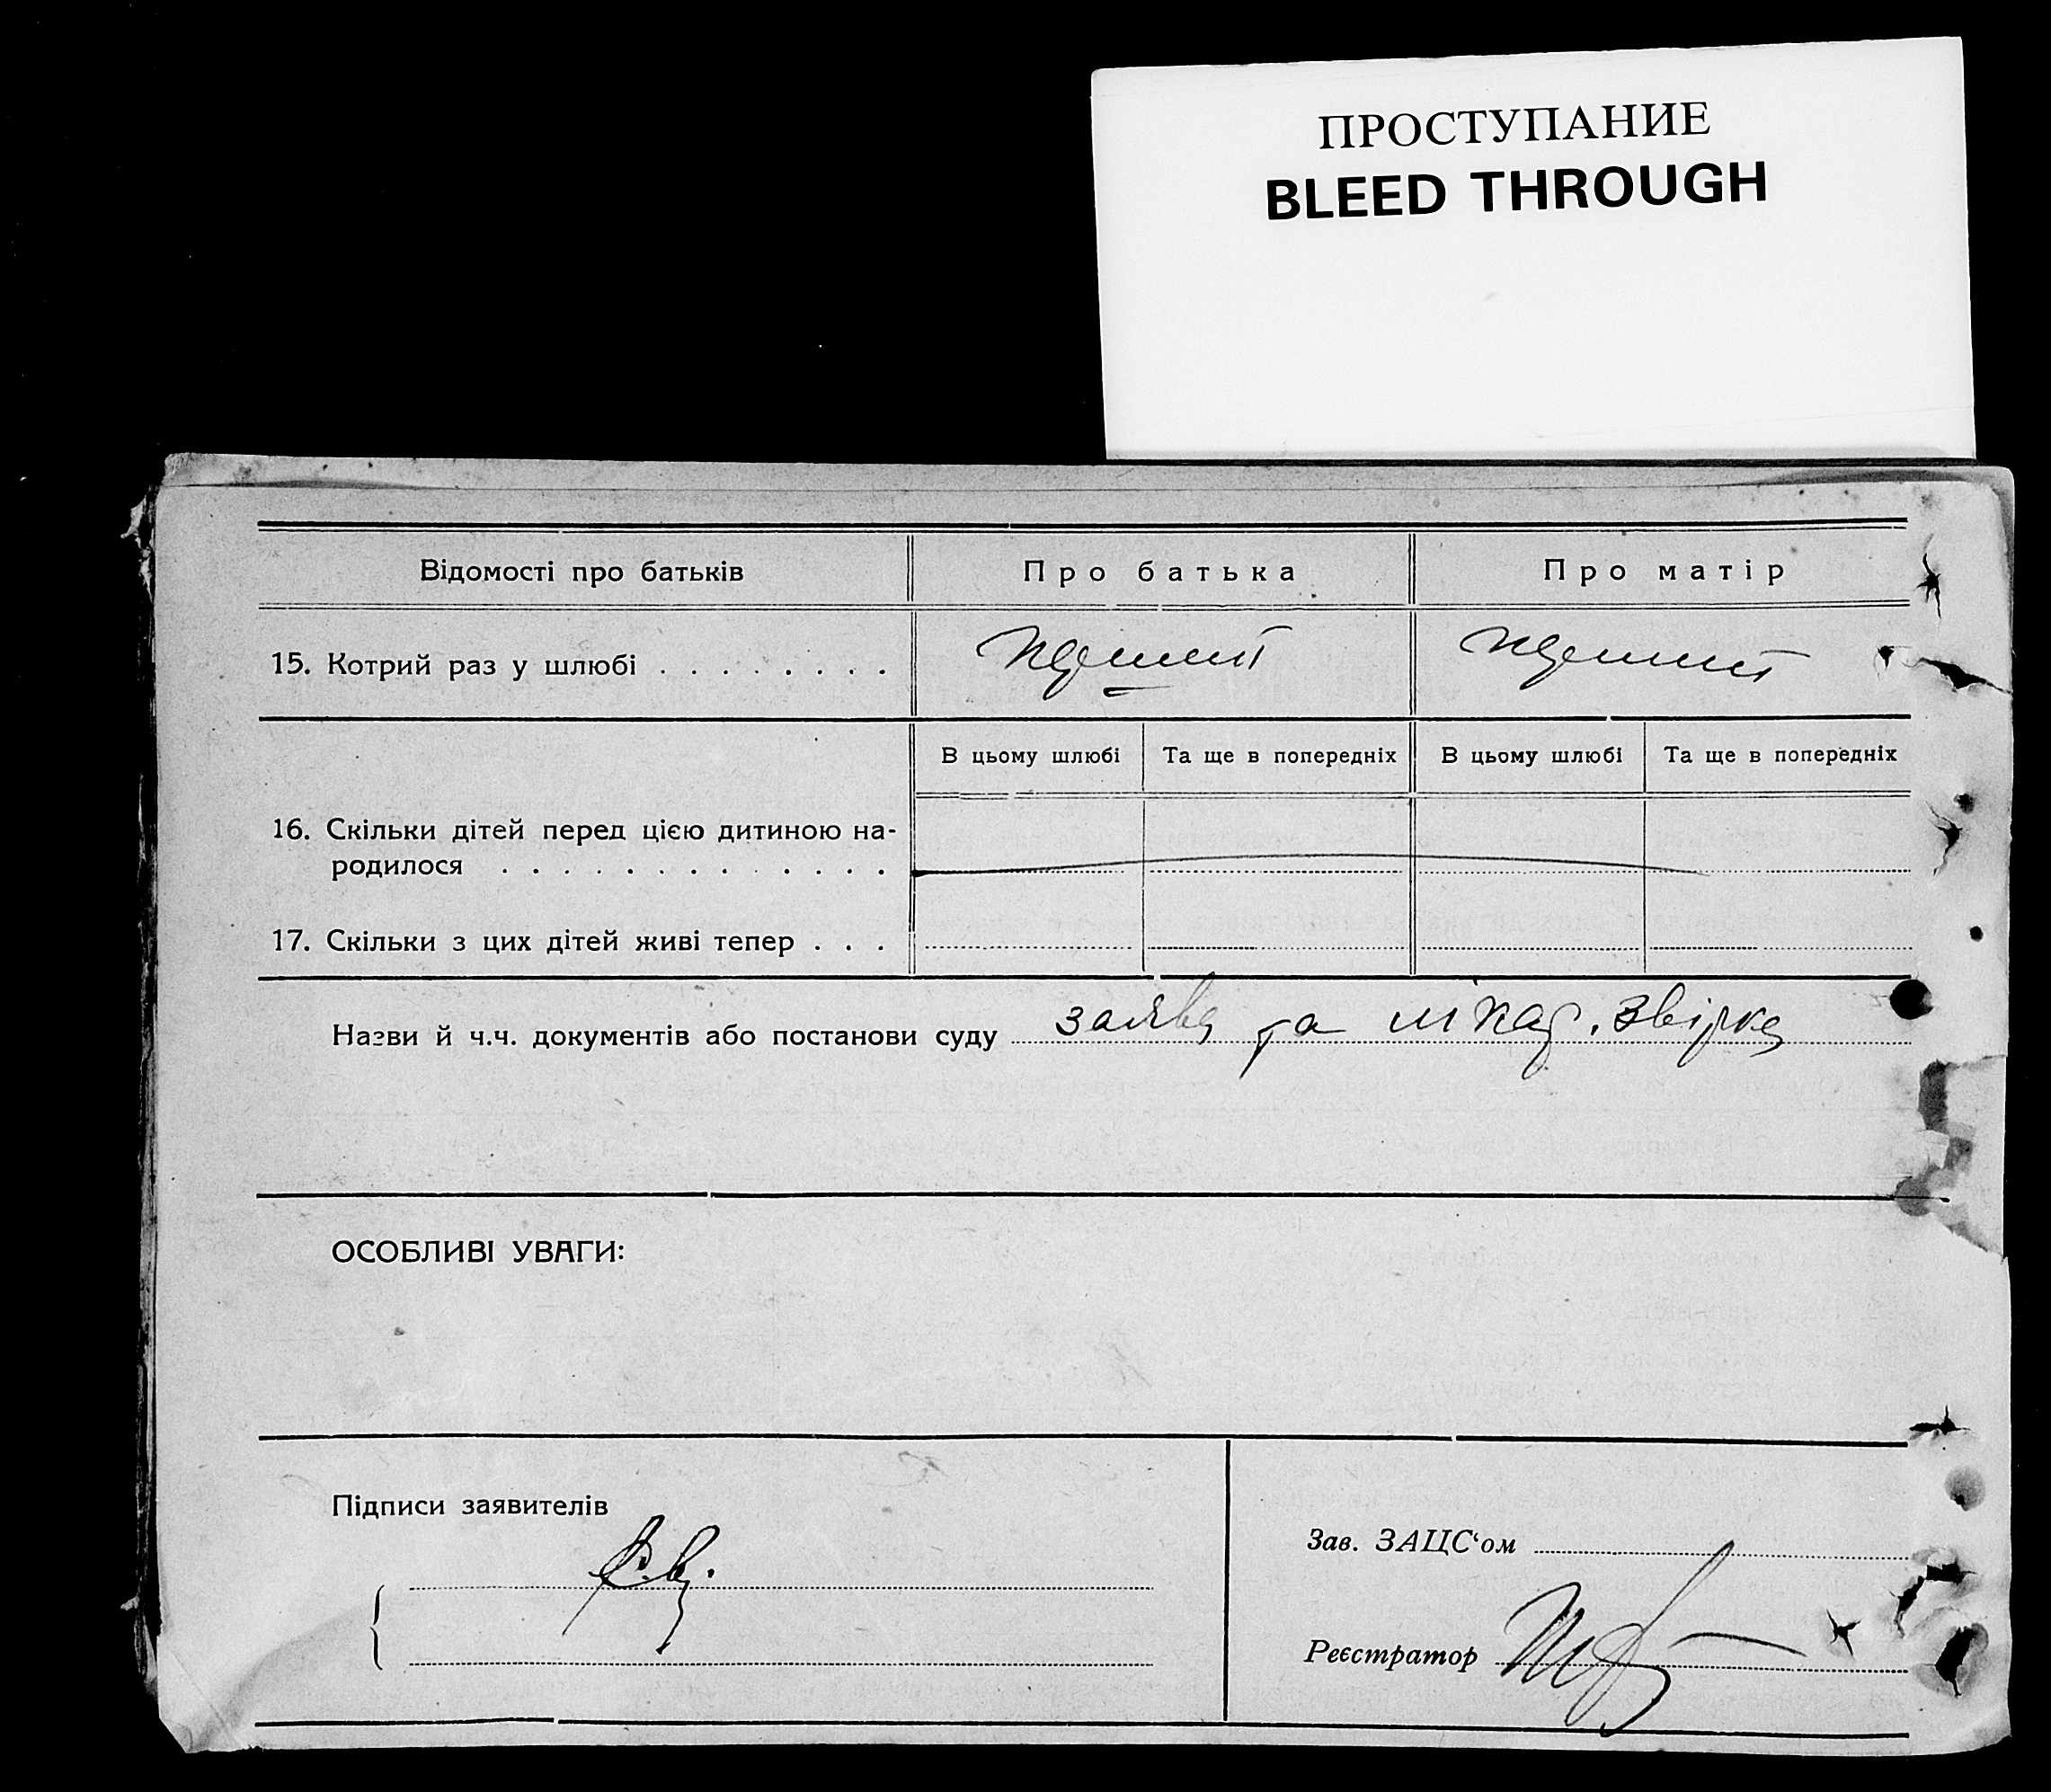 ПРОСТУПАНИЕ
BLEED THROUGH
Відомості про батьків Про батька Про матір
15. Котрий раз у шлюбі . . . . . . . .
В цьому шлюбі Та ще в попередніх В цьому шлюбі Та ще в попередніх
16. Скільки дітей перед цією дитиною на-
родилося . . . . . . . . . . . . .
17. Скільки з цих дітей живі тепер . . .
Назви й ч.ч. документів або постанови суду заява та лікар.
ОСОБЛИВІ УВАГИ:
Підписи заявителів
Зав. ЗАЦС‘ом
Реєстратор